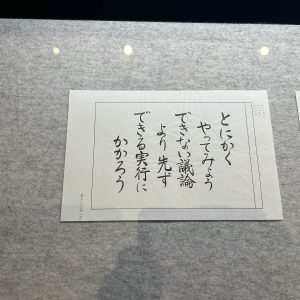 とにかく
やってみよう
できない議論
より先ず
できる実行に
かかろう